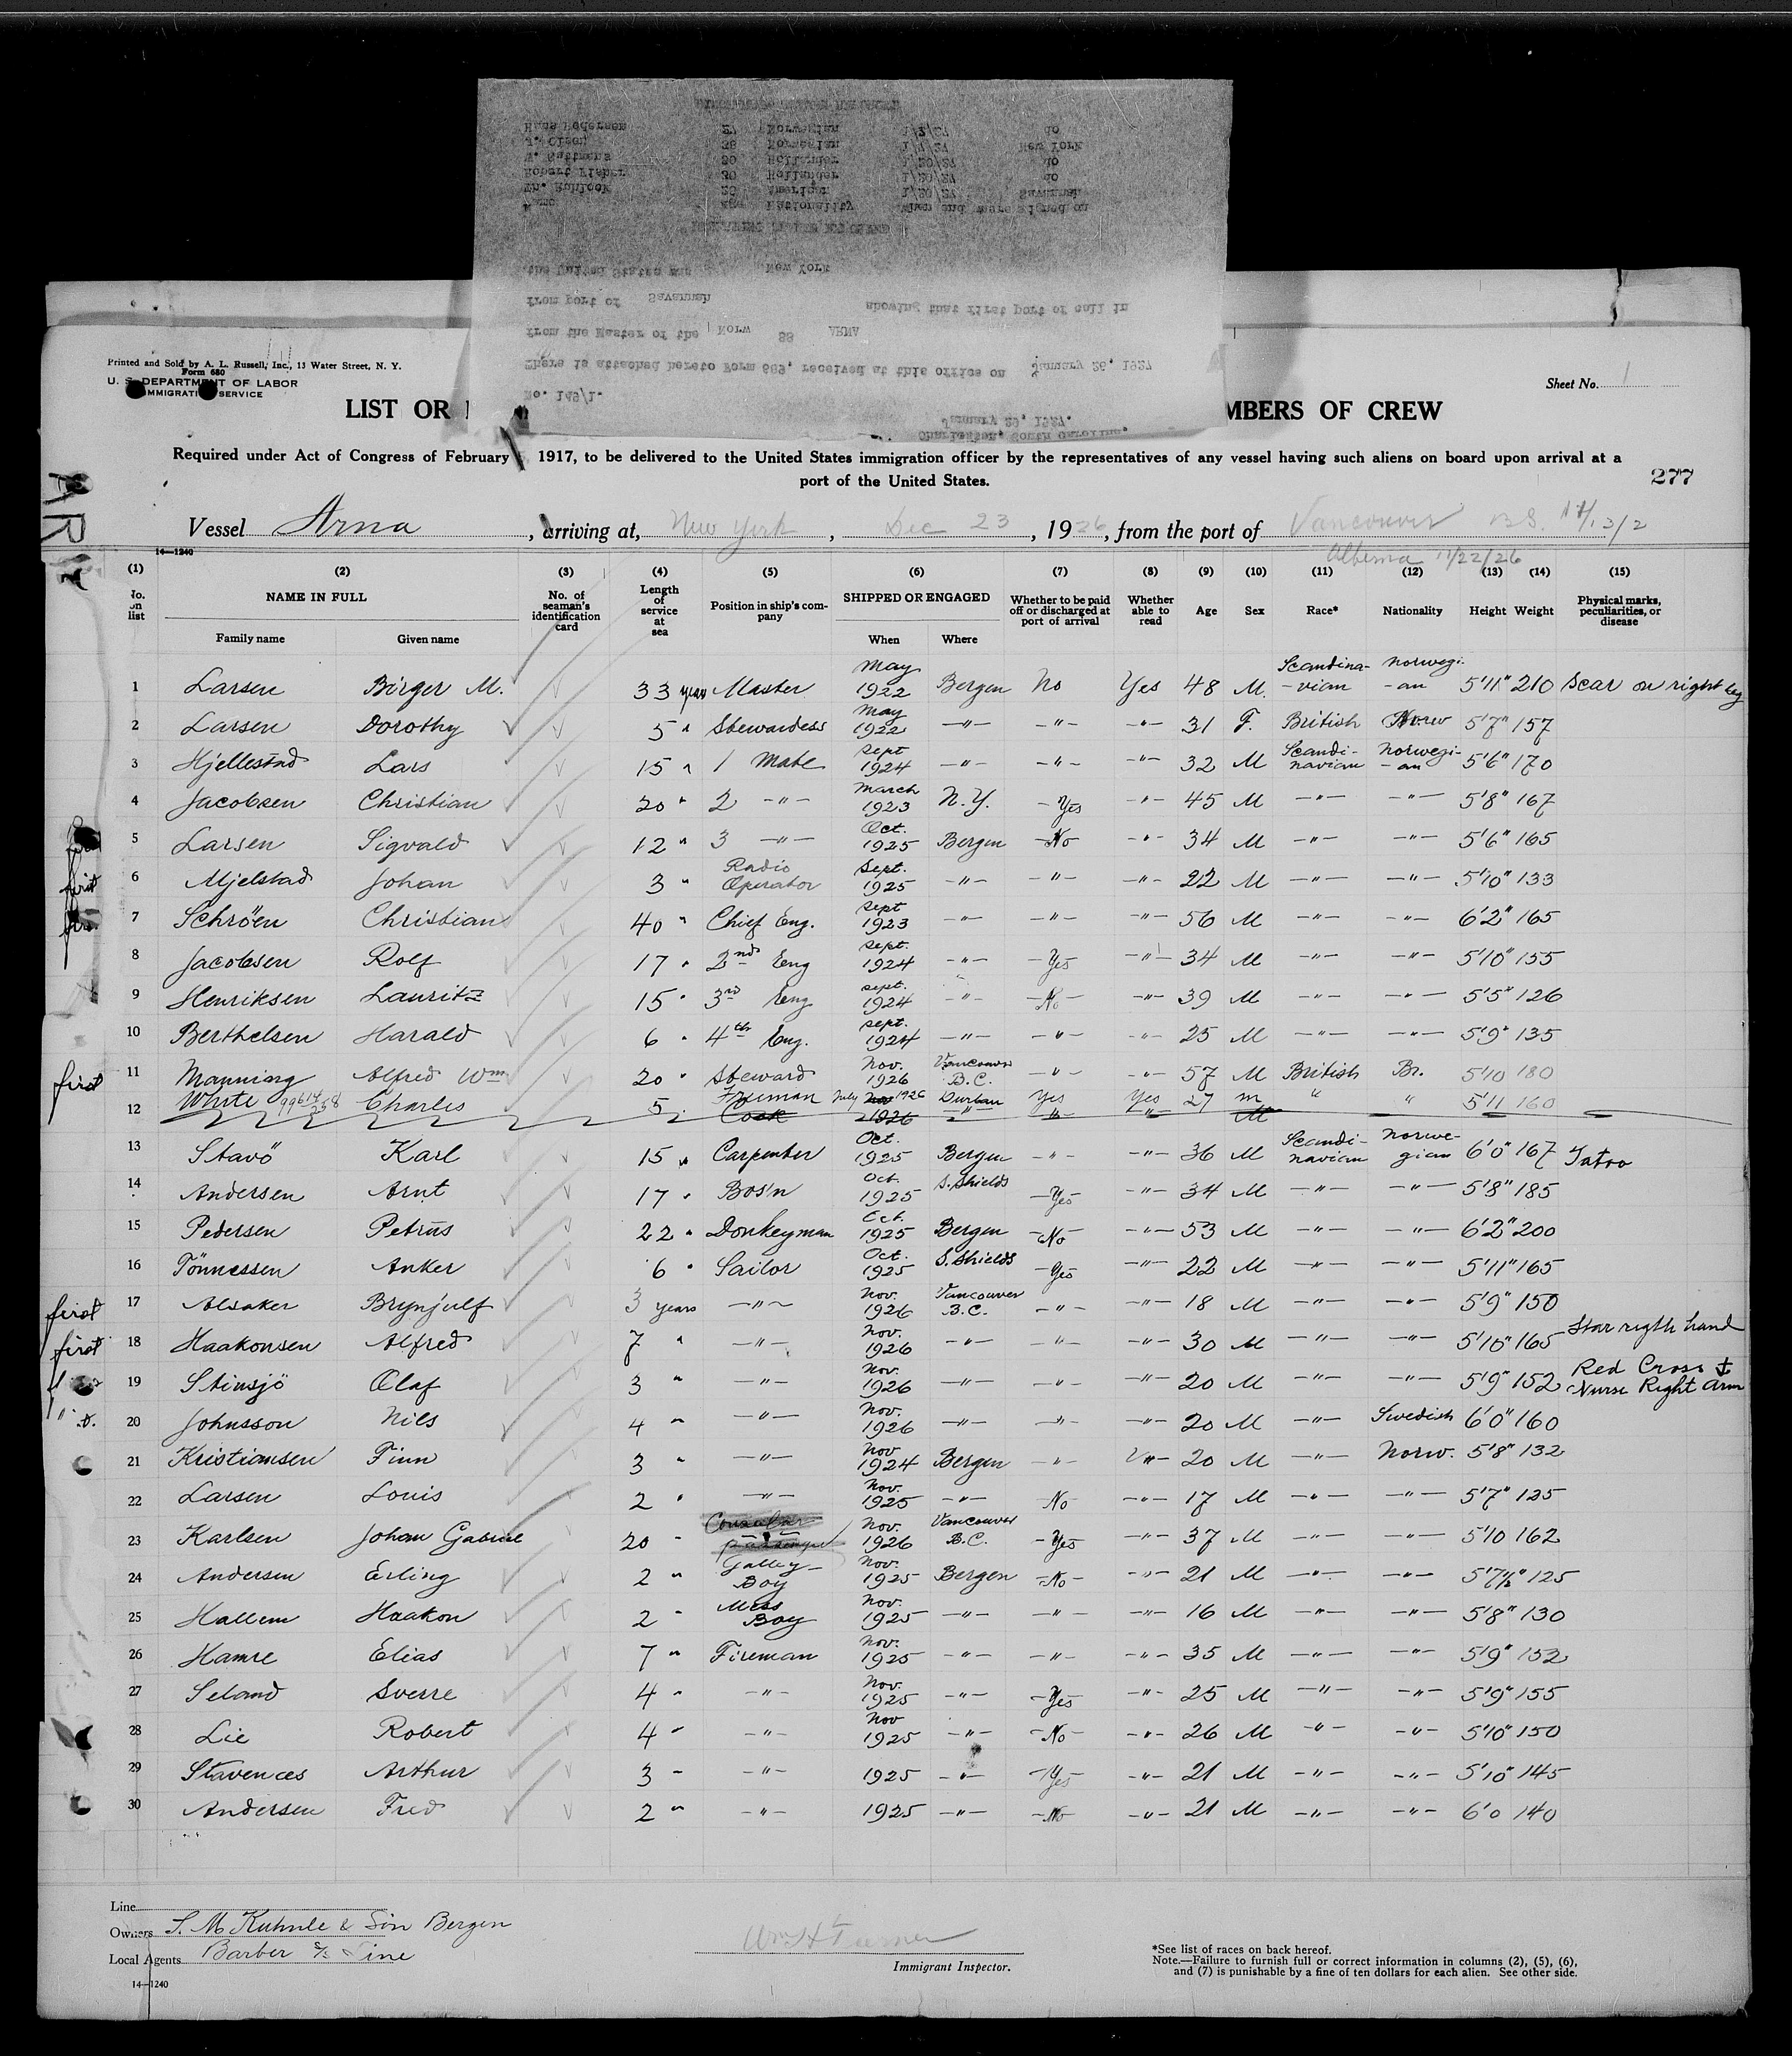 REMAINING ALIENS NOT CREWE
Hans Pedersen 27 Norwegian 1/2/27 do
J. Olsen 38 Norwegian 1/1/27 New York
30 Hollander 1/20/27 do
Robert Fisher 30 Hollander 1/20/27 do
25 American 1/20/27 Savannah
Name Age Nationality When and where signed on
the United States was New York
from port of Savannah showing that first port of call in
from the Master of the Norw SS ARNA
There is attached hereto Form 689, received at this office on January 26, 1927
No. 149/1.
January 29, 1927.
Charleston, South Carolina,
Printed and Sold by A. L. Russell, Inc., 13 Water Street, N. Y.
Form 680
U. S. DEPARTMENT OF LABOR
IMMIGRATION SERVICE
Sheet No. 1
LIST OR MBERS OF CREW
Required under Act of Congress of February 1917, to be delivered to the United States immigration officer by the representatives of any vessel having such aliens on board upon arrival at a
port of the United States.
277
Vessel Arna, arriving at, New York, Dec 23, 1926, from the port of Vancouver
Alberna 11/22/26
14—1240
(1) (2) (3) (4) (5) (6) (7) (8) (9) (10) (11) (12) (13) (14) (15)
No. on list NAME IN FULL Family name Given name No. of seaman's identification card Length of service at sea Position in ship's company SHIPPED OR ENGAGED When Where Whether to be paid off or discharged at port of arrival Whether able to read Age Sex Race* Nationality Height Weight Physical marks, peculiarities, or disease
1 Larsen Birger M. 33 years Master May 1922 Bergen No Yes 48 M. Scandina-vian Norwegi-an 5'11" 210 Scar on right leg
2 Larsen Dorothy 5 " Stewardess May 1922 —"— —"— —"— 31 F. British Norw 5'7" 157
3 Hjellestad Lars 15 " 1 Mate Sept 1924 —"— —"— —"— 32 M Scandi-navian Norwegi-an 5'6" 170
4 Jacobsen Christian 20 " 2 —"— March 1923 N.Y. Yes —"— 45 M —"— —"— 5'8" 167
5 Larsen Sigvald 12 " 3 —"— Oct. 1925 Bergen No —"— 34 M —"— —"— 5'6" 165
first 6 Mjelstad Johan 3 " Radio Operator Sept. 1925 —"— —"— —"— 22 M —"— —"— 5'10" 133
7 Schröen Christian 40 " Chief Eng. Sept 1923 —"— —"— —"— 56 M —"— —"— 6'2" 165
8 Jacobsen Rolf 17 " 2nd Eng Sept. 1924 —"— Yes —"— 34 M —"— —"— 5'10" 155
9 Henriksen Lauritz 15 " 3rd Eng Sept. 1924 —"— No —"— 39 M —"— —"— 5'5" 126
10 Berthelsen Harald 6 " 4th Eng. Sept. 1924 —"— —"— —"— 25 M —"— —"— 5'9" 135
first 11 Manning Alfred Wm 20 " Steward Nov. 1926 Vancouver B.C. —"— —"— 57 M British Br. 5'10 180
12 White Charles 5 Fireman Cook July 1926 Nov 1926 Durban Yes Yes 27 m " " 5'11 160
13 Stavö Karl 15 " Carpenter Oct. 1925 Bergen —"— —"— 36 M Scandi-navian Norwe-gian 6'0" 167 Tatoo
14 Andersen Arnt 17 " Bos'n Oct. 1925 S. Shields Yes —"— 34 M —"— —"— 5'8" 185
15 Pedersen Petrus 22 " Donkeyman Oct. 1925 Bergen No —"— 53 M —"— —"— 6'2" 200
16 Tönnessen Anker 6 " Sailor Oct. 1925 S. Shields Yes —"— 22 M —"— —"— 5'11" 165
first 17 Alsaker Brynjulf 3 years —"— Nov. 1926 Vancouver B.C. —"— —"— 18 M —"— —"— 5'9" 150
first 18 Haakonsen Alfred 7 " —"— Nov. 1926 —"— —"— —"— 30 M —"— —"— 5'10" 165 Star rigth hand
19 Stinsjö Olaf 3 " —"— Nov. 1926 —"— —"— —"— 20 M —"— —"— 5'9" 152 Red Cross Nurse Right Arm
20 Johnsson Nils 4 " —"— Nov. 1926 —"— —"— —"— 20 M —"— Swedish 6'0" 160
21 Kristiansen Finn 3 " —"— Nov 1924 Bergen —"— —"— 20 M —"— Norw. 5'8" 132
22 Larsen Louis 2 " —"— Nov. 1925 —"— No —"— 17 M —"— —"— 5'7" 125
23 Karlsen Johan Gabriel 20 " Consular passenger Nov. 1926 Vancouver B.C. Yes —"— 37 M —"— —"— 5'10 162
24 Andersen Erling 2 " Galley Boy Nov. 1925 Bergen No —"— 21 M —"— —"— 5'7½" 125
25 Hallem Haakon 2 " Mess Boy Nov. 1925 —"— —"— —"— 16 M —"— —"— 5'8" 130
26 Hamre Elias 7 " Fireman Nov. 1925 —"— —"— —"— 35 M —"— —"— 5'9" 152
27 Seland Sverre 4 " —"— Nov. 1925 —"— Yes —"— 25 M —"— —"— 5'9" 155
28 Lie Robert 4 " —"— Nov 1925 —"— No —"— 26 M —"— —"— 5'10" 150
29 Stavences Arthur 3 " —"— 1925 —"— Yes —"— 21 M —"— —"— 5'10" 145
30 Andersen Fred 2 " —"— 1925 —"— No —"— 21 M —"— —"— 6'0 140
Line
Owners S. M. Kuhnle & Son Bergen
Local Agents Barber S/S Line
14—1240
Wm H Turner
Immigrant Inspector.
*See list of races on back hereof.
Note.—Failure to furnish full or correct information in columns (2), (5), (6),
and (7) is punishable by a fine of ten dollars for each alien. See other side.